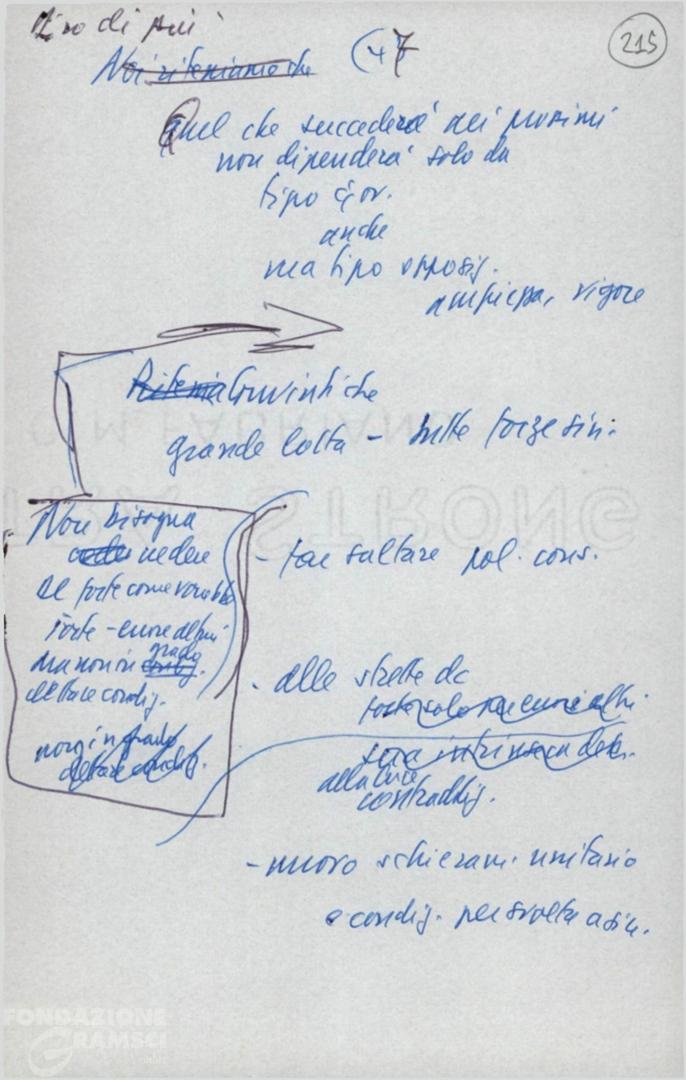 215
di più
Noi riteniamo che (47
Quel che succederà nei prossimi
non dipenderà solo da
tipo gov.
anche
ma tipo opposiz.
ampiezza, vigore
Ritenia Convinti che
grande lotta - tutte forze sin.
Non bisogna
vedere
forte come vorrebbe
forte - 
ma non in grado
dettare condiz.
non in grado
dettare condiz.
- far saltare pol. cons.
- alle strette dc
alla luce
contraddiz.
- nuovo schieram. unitario
e condiz. per svolta a sin.
FONDAZIONE
GRAMSCI